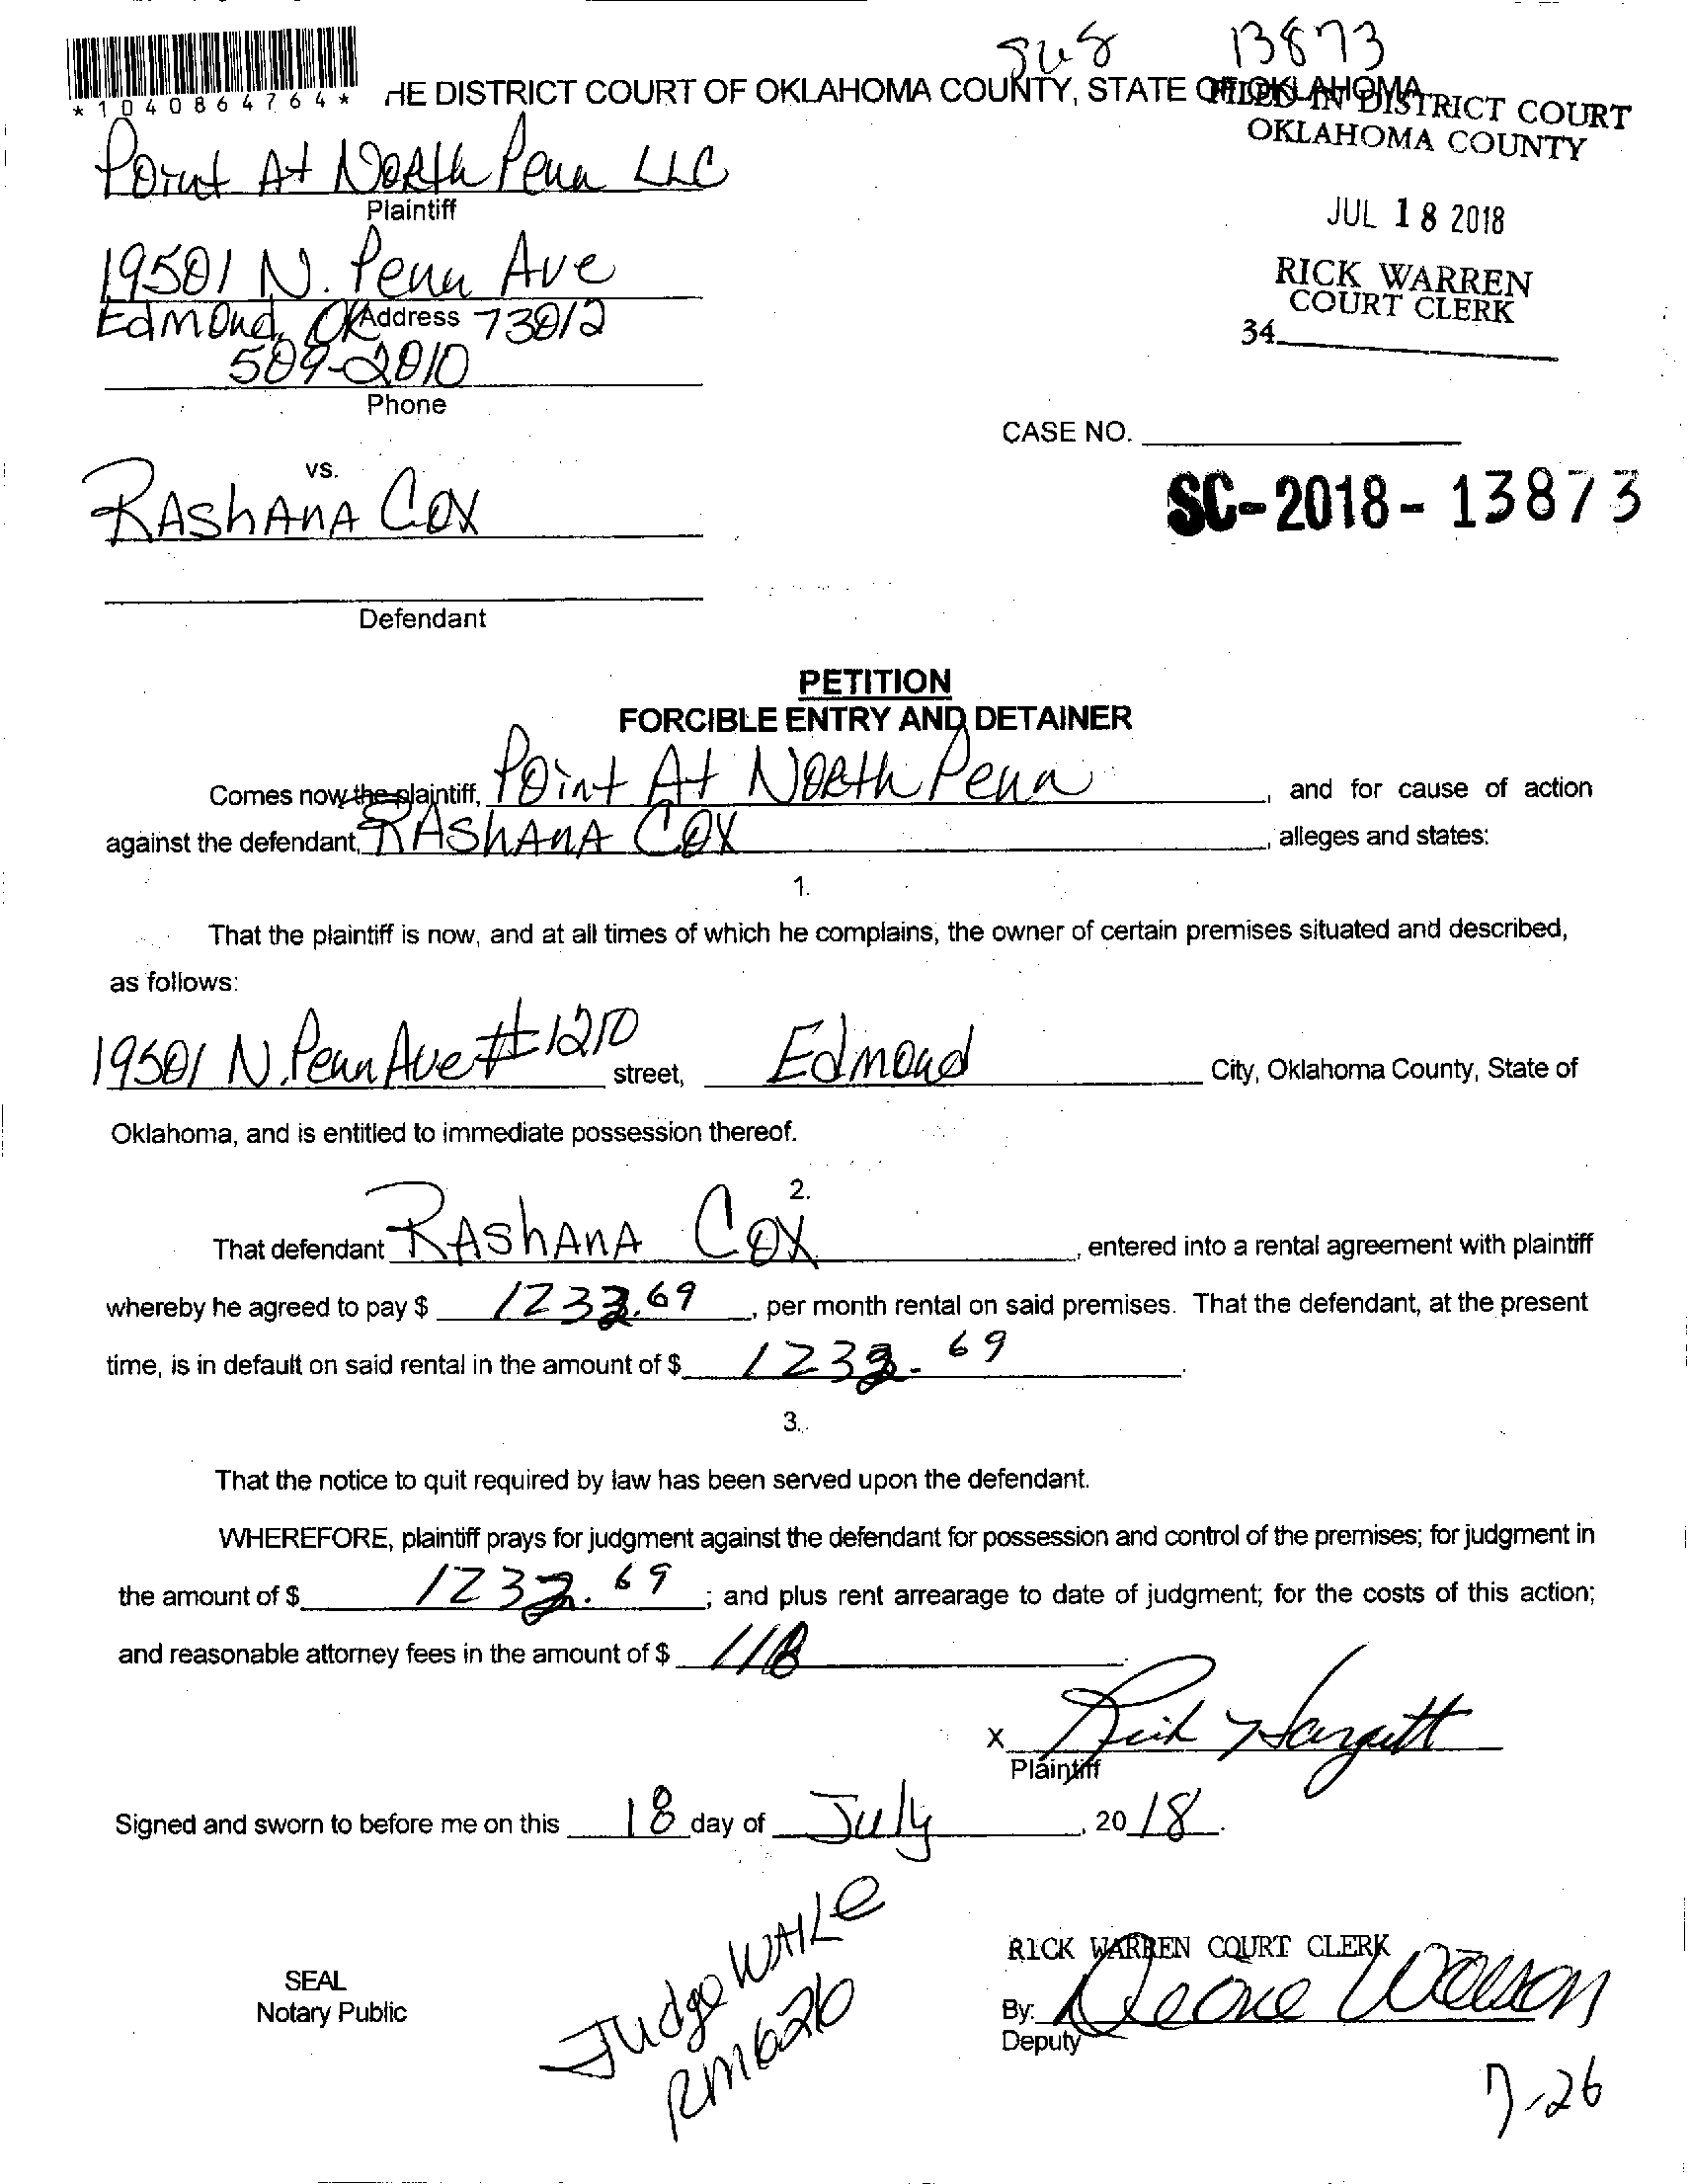 13873
*1040864764* HE DISTRICT COURT OF OKLAHOMA COUNTY, STATE OF OKLAHOMA
FILED IN DISTRICT COURT
OKLAHOMA COUNTY
Point At North Penn LLC
Plaintiff
JUL 18 2018
19501 N. Penn Ave
RICK WARREN
COURT CLERK
Edmond, OK Address 73012
34
509-2010
Phone
CASE NO.
vs.
RAshAnA Cox
SC-2018-13873
Defendant
PETITION
FORCIBLE ENTRY AND DETAINER
Comes now the plaintiff, Point At North Penn, and for cause of action
against the defendant, RAshAnA Cox, alleges and states:
1.
That the plaintiff is now, and at all times of which he complains, the owner of certain premises situated and described,
as follows:
19501 N. Penn Ave #1210 street, Edmond City, Oklahoma County, State of
Oklahoma, and is entitled to immediate possession thereof.
2.
That defendant RAshAnA Cox, entered into a rental agreement with plaintiff
whereby he agreed to pay $ , per month rental on said premises. That the defendant, at the present
time, is in default on said rental in the amount of $ .
3.
That the notice to quit required by law has been served upon the defendant.
WHEREFORE, plaintiff prays for judgment against the defendant for possession and control of the premises; for judgment in
the amount of $ ; and plus rent arrearage to date of judgment; for the costs of this action;
and reasonable attorney fees in the amount of $ .
X Rick Hargett
Plaintiff
Signed and sworn to before me on this 18 day of July, 2018.
Judge WAILE
RM 626
RICK WARREN COURT CLERK
SEAL
Notary Public
By:
Deputy
7-26